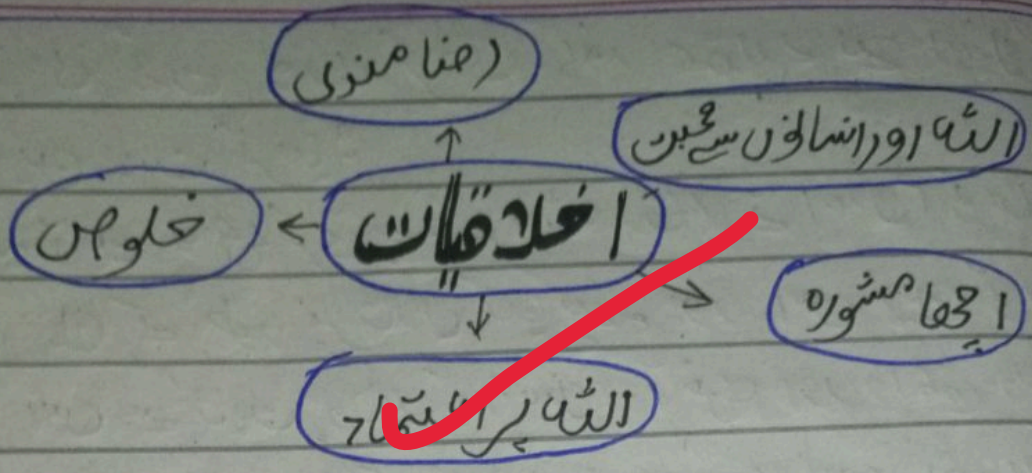 رضا مندی
اللہ اور انسانوں سے محبت
اخلاقیات
خلوص
اچھا مشورہ
اللہ پر اعتماد